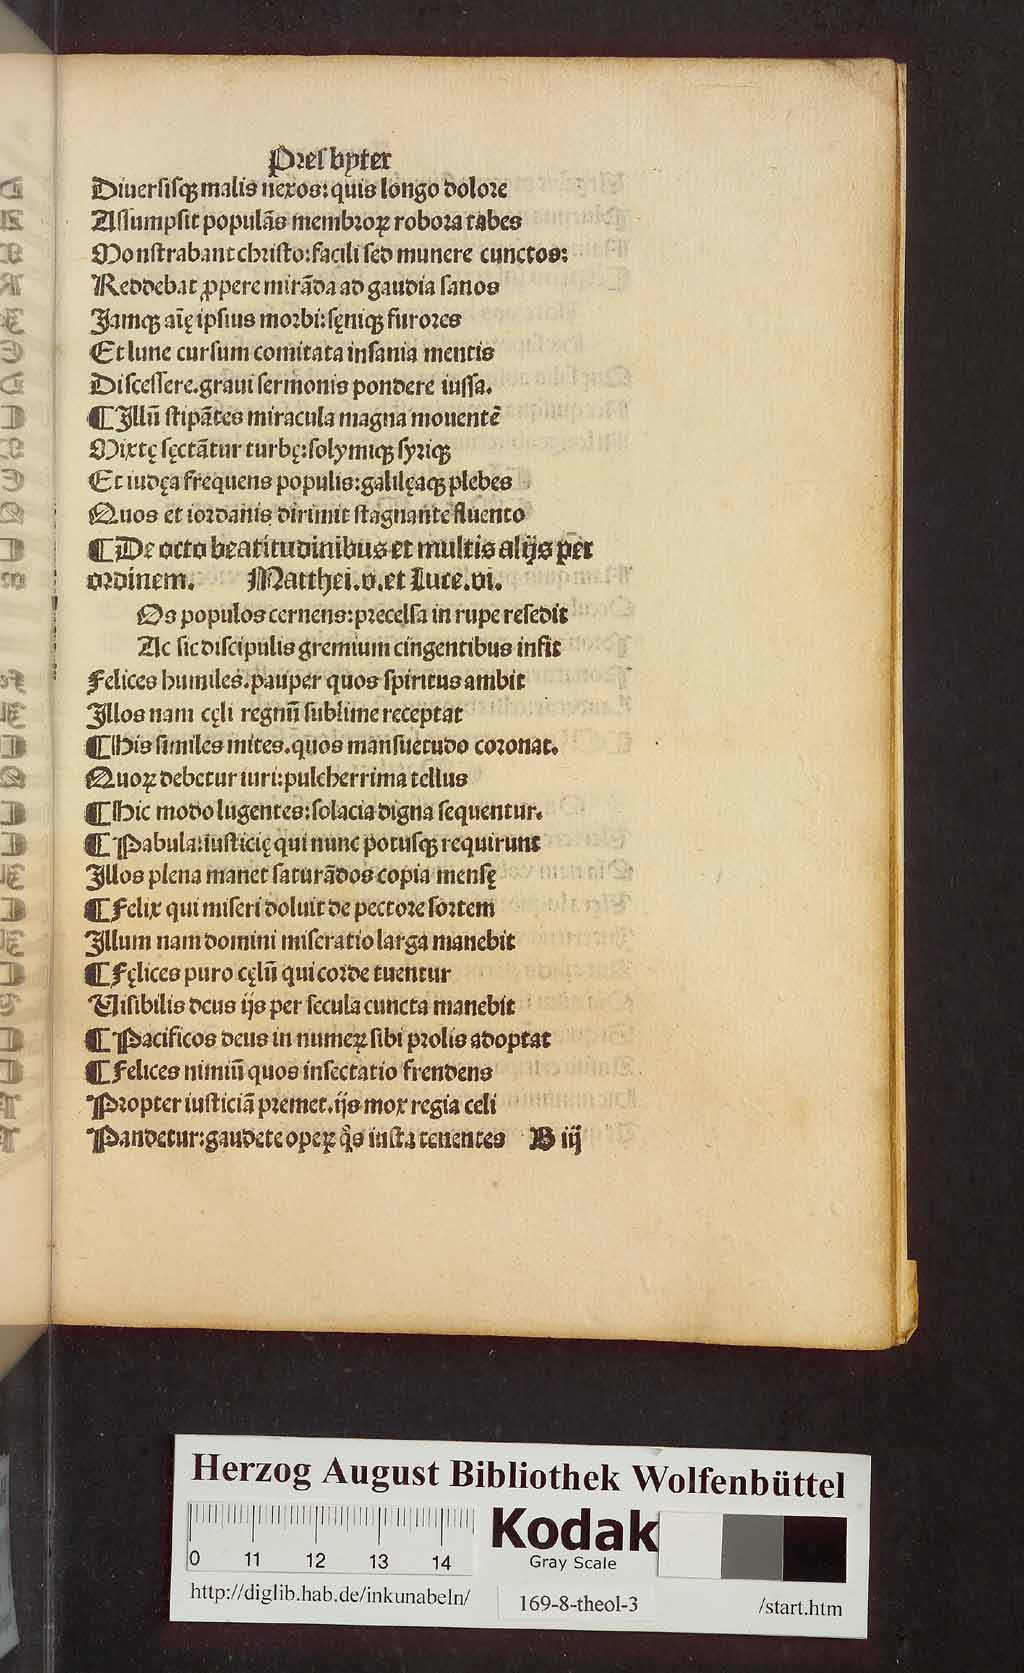 Presbyter
Diuersisqꝫ malis nexos: quis longo dolore
Assumpsit populãs membroꝝ robora tabes
Monstrabant christo: facili sed munere cunctos:
Reddebat ꝓpere mirãda ad gaudia sanos
Jamqꝫ aĩę ipsius morbi: sęniqꝫ furores
Et lune cursum comitata insania mentis
Discessere. graui sermonis pondere iussa.
¶ Illũ stipãtes miracula magna mouentẽ
Mixtę sęctãtur turbę: solymiqꝫ syriqꝫ
Et iudęa frequens populis: galilęaqꝫ plebes
Quos et iordanis dirimit stagnante fluento
¶ De octo beatitudinibus et multis alijs per
ordinem. Matthei. v. et Luce. vi.
Os populos cernens: precelsa in rupe resedit
Ac sic discipulis gremium cingentibus infit
Felices humiles. pauper quos spiritus ambit
Illos nam cęli regnũ sublime receptat
¶ His similes mites. quos mansuetudo coronat.
Quoꝝ debetur iuri: pulcherrima tellus
¶ Hic modo lugentes: solacia digna sequentur.
¶ Pabula: iusticię qui nunc potusqꝫ requirunt
Illos plena manet saturãdos copia mensę
¶ Felix qui miseri doluit de pectore sortem
Illum nam domini miseratio larga manebit
¶ Fęlices puro cęlũ qui corde tuentur
Visibilis deus ijs per secula cuncta manebit
¶ Pacificos deus in numeꝝ sibi prolis adoptat
¶ Felices nimiũ quos insectatio frendens
Propter iusticiã premet. ijs mox regia celi
Pandetur: gaudete opeꝝ q̃s iusta tenentes B iij
Herzog August Bibliothek Wolfenbüttel
0 11 12 13 14
Kodak
Gray Scale
http://diglib.hab.de/inkunabeln/ 169-8-theol-3 /start.htm